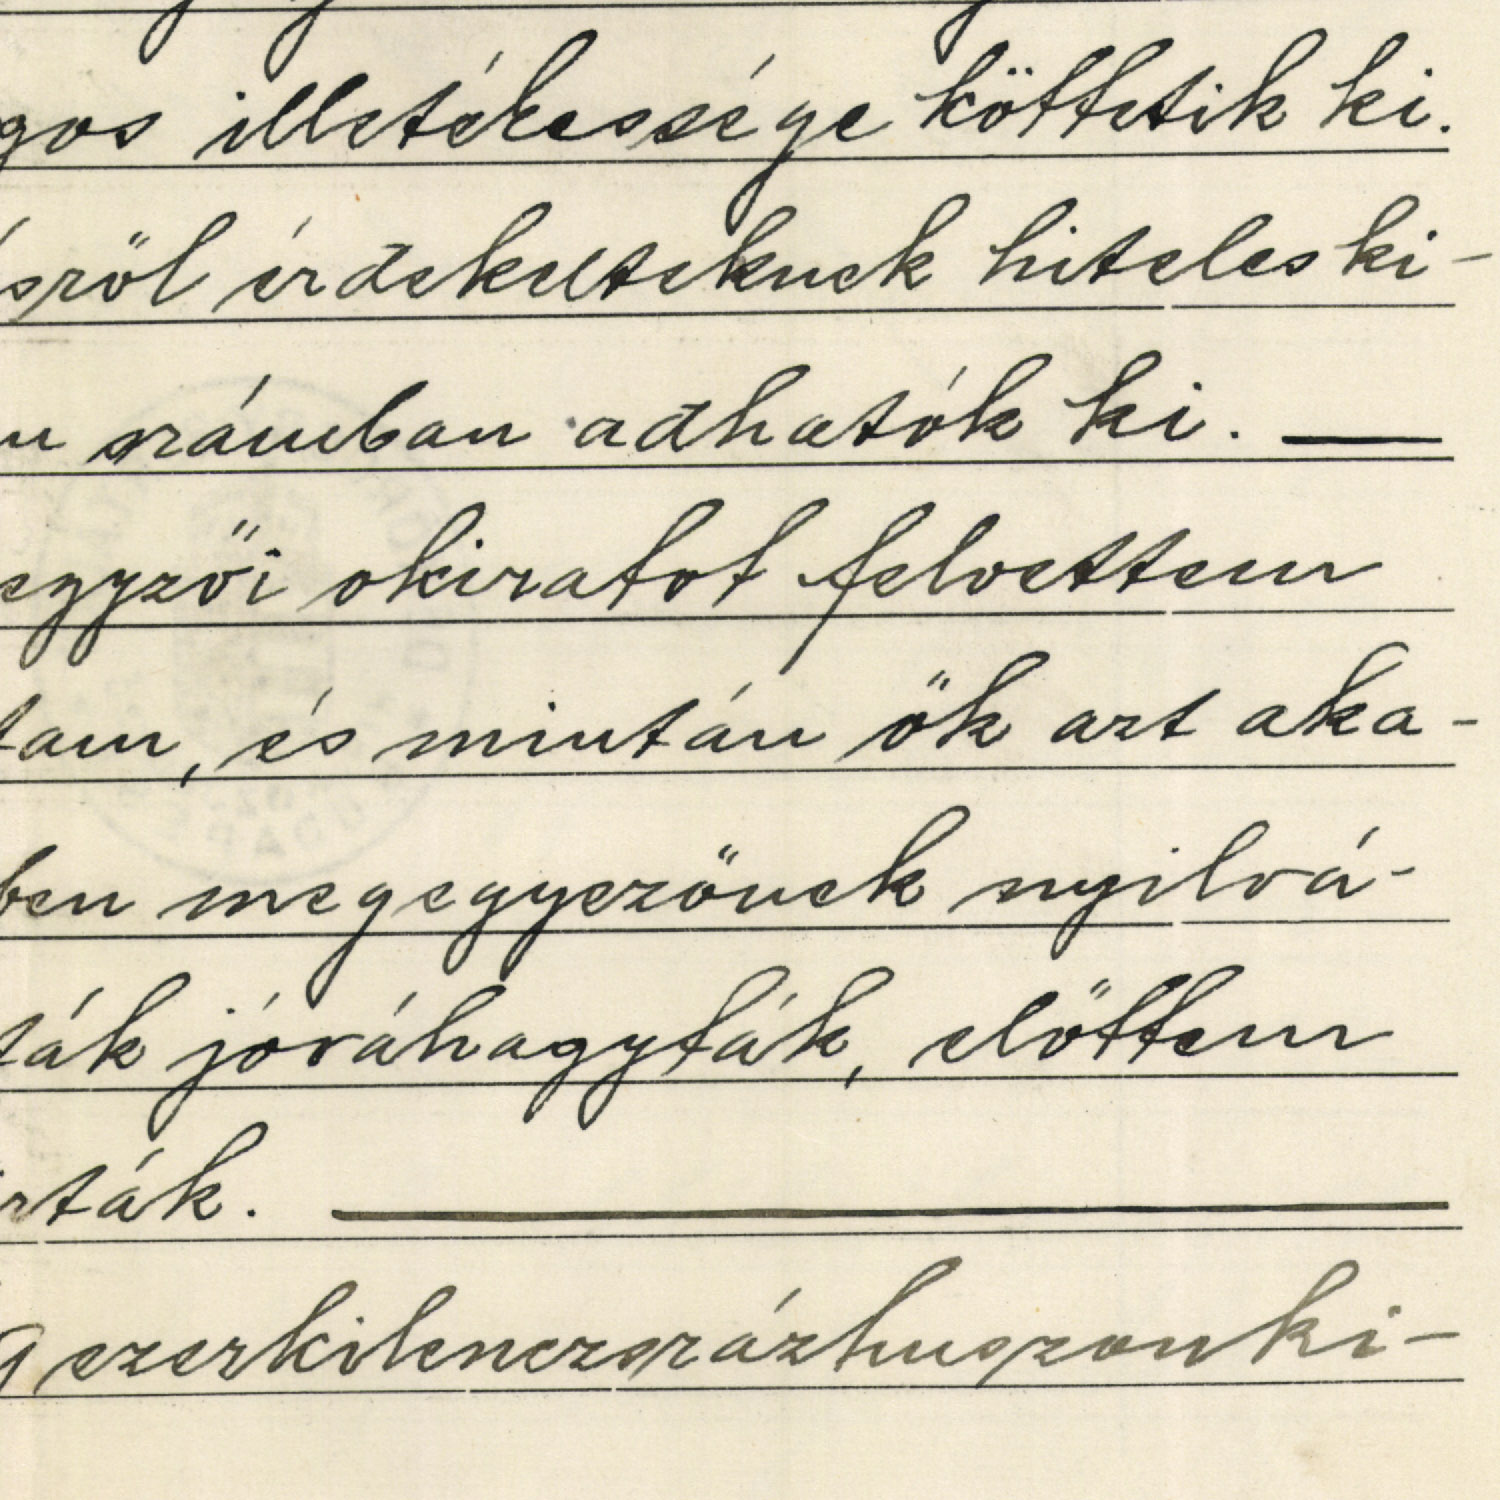 gos illetékessége köttetik ki.
sről érdekelteknek hiteles ki-
számban adhatók ki.
egyzői okiratot felvettem
tam, és miután ők azt aka-
ben megegyezőnek nyilvá-
ták jóváhagyták, előttem
rták.
ezerkilenczszázhuszonki-